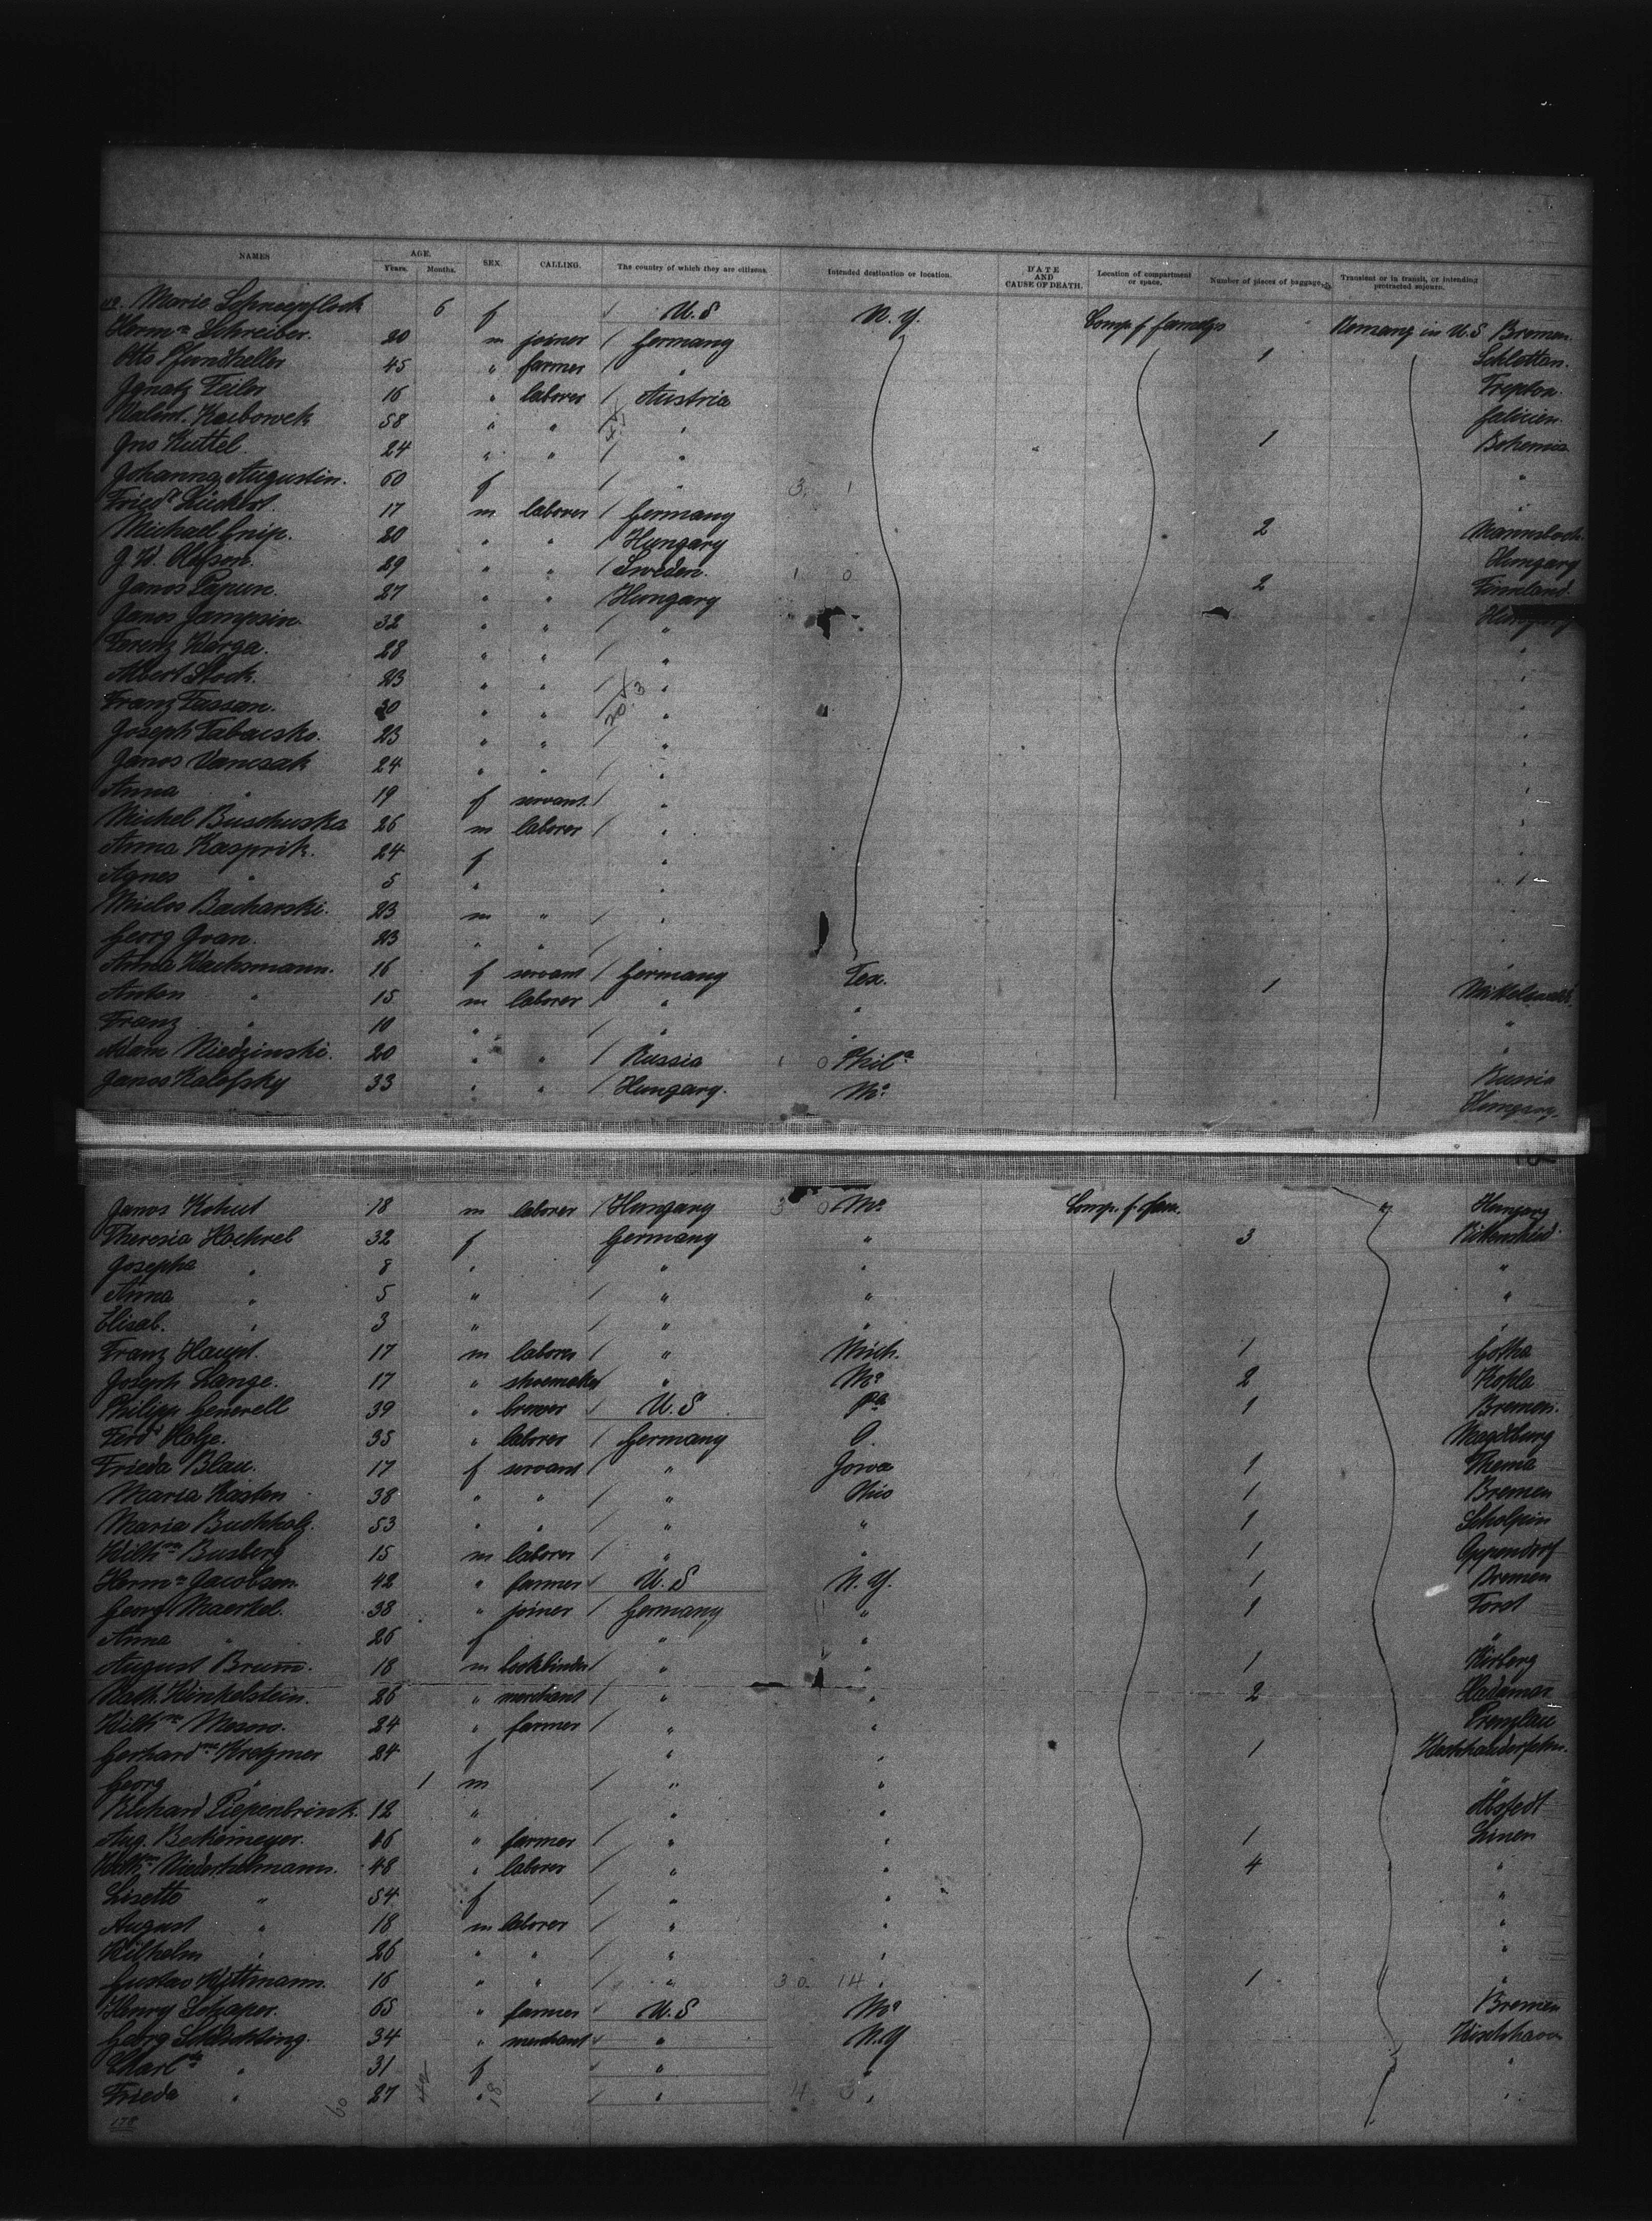 NAMES AGE. Years. Months. SEX. CALLING. The country of which they are citizens. Intended destination or location. DATE AND CAUSE OF DEATH. Location of compartment or space. Number of pieces of baggage. Transient or in transit, or intending protracted sojourn.
Marie Schneepflock 6 f U.S N.Y.
Hermn Schreiber. 20 m joiner / Germany Comp. f Remang in U.S Bremen
Otto Pfundheller 45 " farmer / " 1 Schlottau.
Ignatz Feiler 16 " laborer / Austria Treptow.
58 " " " Galicien
Jno Kuttel. 24 " " / " 1 Bohemia
Johanna Augustin. 60 f / " 3 1 "
Friedr 17 m laborer / Germany "
Michael Gnip. 20 " " / Hungary 2
J. W. Olefson. 29 " " / Sweden. 1 0 Hungary
Janos 27 " " / Hungary 2 Finnland
Janos 32 " " / " Hungary
Ferenz Karga. 28 " " / " "
Albert Stock. 23 " " / " "
Franz Tassan. 30 " " / " "
Joseph Tabacsko. 23 " " / " "
Janos Vancsak 24 " " / " "
Anna " 19 f servant / " "
Michel Buschuska 26 m laborer / " "
Anna Kasprik. 24 f " "
Agnes " 5 " " "
Miclos Bacharski. 23 m " / " "
Georg Ivan. 23 " " / " "
Anna Wachsmann. 16 f servant / Germany Tex. "
Anton " 15 m laborer / " " 1
Franz " 10 " / " " "
Adam Niedzinski. 20 " " / Russia 1 0 Phila "
Janos Kalofsky 33 " " / Hungary. Mo Russia
Hungary.
Janos Kohut 18 m laborer / Hungary 3 0 Mo Comp. f fam. " Hungary
Theresia Hochrel 32 f Germany " 3
Josepha " 8 " / " " "
Anna " 5 " / " " "
Elisab. " 3 " / " " "
Franz Haupt. 17 m laborer / " Mich. 1 Gotha
Joseph Lange. 17 " shoemaker " Mo 2 Kohla
Philipp Generell 39 " brewer U.S. Pa 1 Bremen.
Ferd Holze. 35 " laborer / Germany O. Magdburg
Frieda Blau. 17 f servant / " Jowa 1 Thema
Maria Kasten 38 " " / " Ohio 1 Bremen
Maria Buchholz. 53 " " / " " 1 Scholpin
Wilhm Busberg 15 m laborer / " " 1 Oppendorf
Hermn Jacobsen. 42 " farmer U.S N.Y. 1 Bremen
Georg Maerkel. 38 " joiner / Germany " 1 Forst
Anna " 26 f " " "
August Brum. 18 m bookbinder / " " 1
Nath. Winkelstein. 26 " merchant / " " 2 Hadamar
Wilhm 24 " farmer / " " Prenzlau
Gerhardne Kretzmer 24 f " " 1
Georg " 1 m / " " "
Richard Piepenbrink. 12 " " " Abstedt
Aug. Beckemeyer. 66 " farmer / " " 1 Lienen
Wilhm Niederhelmann. 48 " laborer / " " 4 "
Lisette " 54 f / " " "
August " 18 m laborer / " " "
Wilhelm " 26 " " / " " "
Gustav 16 " " / " 30. 14 " 1 "
Henry Schaper. 65 " farmer U.S Mo Bremen
Georg Schlichting. 34 " merchant " N.Y
Charlte " 31 f " " "
Frieda " 27 " " 4 3 " "
60 42 18
178